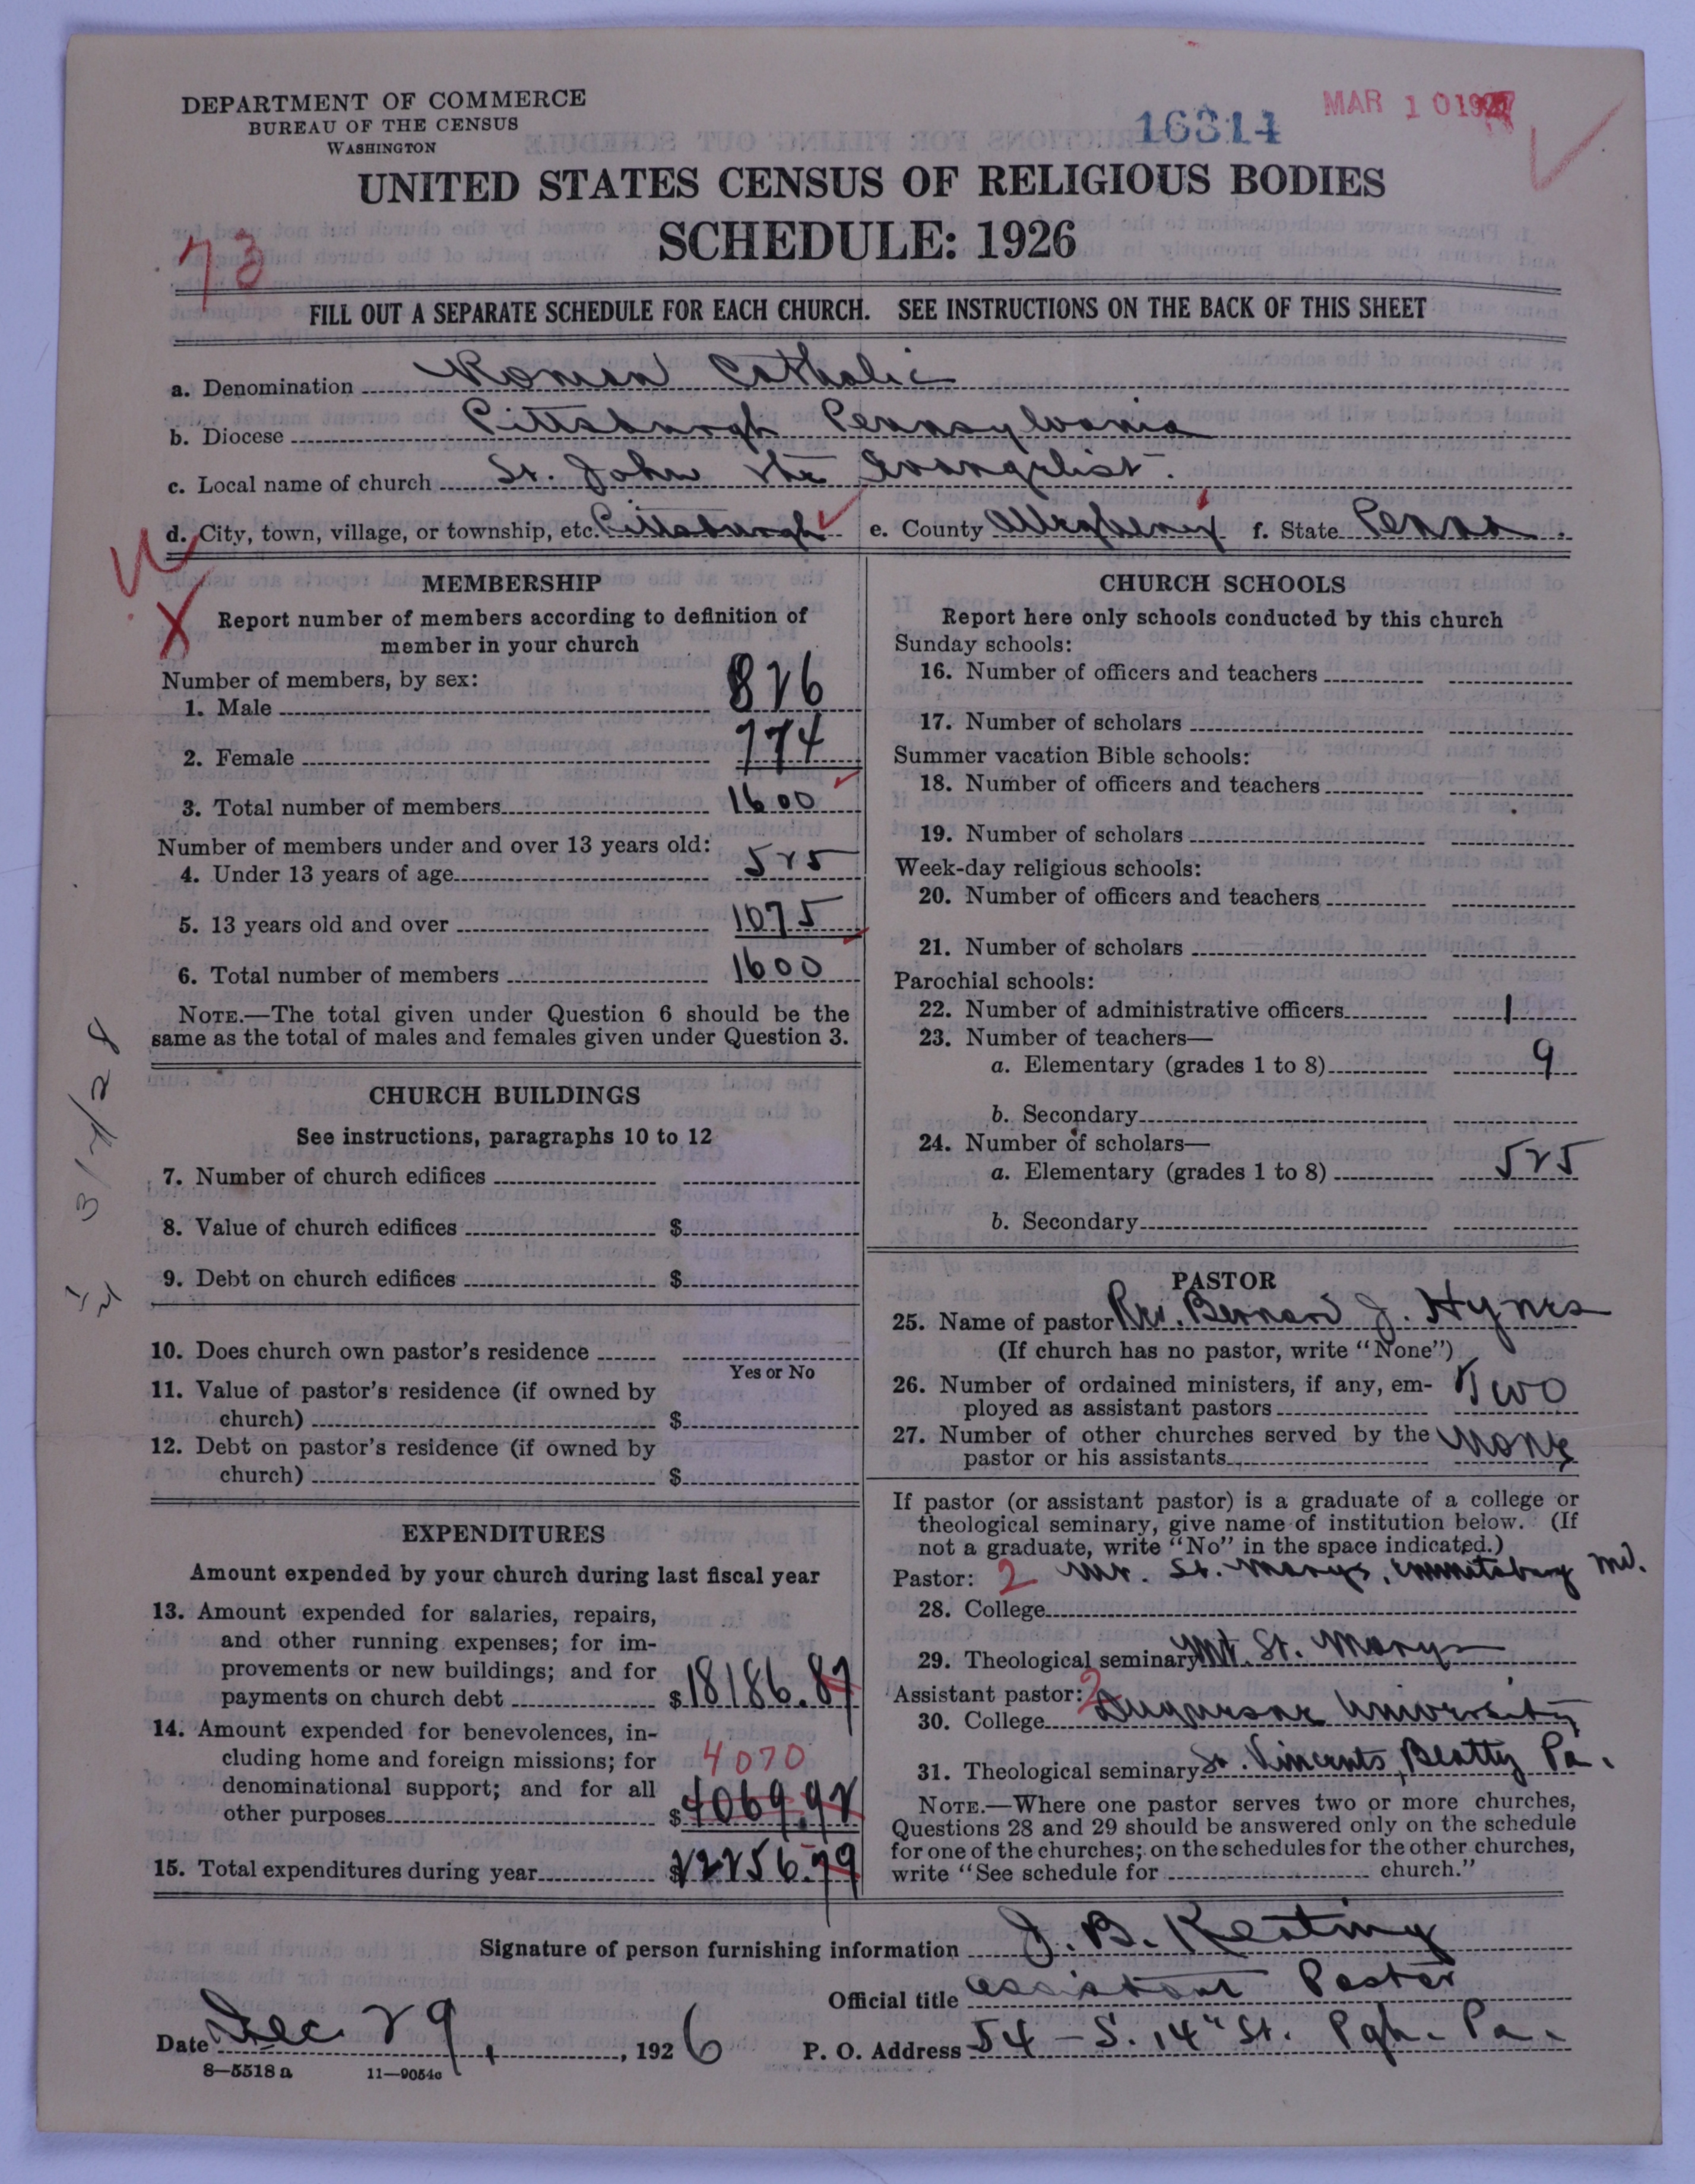 DEPARTMENT OF COMMERCE
BUREAU OF THE CENSUS
WASHINGTON
16314
MAR 10 1927
UNITED STATES CENSUS OF RELIGIOUS BODIES
SCHEDULE: 1926
73
FILL OUT A SEPARATE SCHEDULE FOR EACH CHURCH. SEE INSTRUCTIONS ON THE BACK OF THIS SHEET
a. Denomination Roman Catholic
b. Diocese Pittsburgh Pennsylvania
c. Local name of church St. John the Evangelist.
d. City, town, village, or township, etc. Pittsburgh e. County Allegheny f. State Penna.
MEMBERSHIP
Report number of members according to definition of
member in your church
Number of members, by sex:
1. Male 826
2. Female 774
3. Total number of members 1600
Number of members under and over 13 years old:
4. Under 13 years of age 525
5. 13 years old and over 1075
6. Total number of members 1600
NOTE.—The total given under Question 6 should be the
same as the total of males and females given under Question 3.
CHURCH BUILDINGS
See instructions, paragraphs 10 to 12
7. Number of church edifices
8. Value of church edifices $
9. Debt on church edifices $
10. Does church own pastor's residence
Yes or No
11. Value of pastor's residence (if owned by
church) $
12. Debt on pastor's residence (if owned by
church) $
EXPENDITURES
Amount expended by your church during last fiscal year
13. Amount expended for salaries, repairs,
and other running expenses; for im-
provements or new buildings; and for
payments on church debt $18186.87
14. Amount expended for benevolences, in-
cluding home and foreign missions; for 4070
denominational support; and for all
other purposes $4069.92
15. Total expenditures during year $22256.79
CHURCH SCHOOLS
Report here only schools conducted by this church
Sunday schools:
16. Number of officers and teachers
17. Number of scholars
Summer vacation Bible schools:
18. Number of officers and teachers
19. Number of scholars
Week-day religious schools:
20. Number of officers and teachers
21. Number of scholars
Parochial schools:
22. Number of administrative officers 1
23. Number of teachers—
a. Elementary (grades 1 to 8) 9
b. Secondary
24. Number of scholars—
a. Elementary (grades 1 to 8) 525
b. Secondary
PASTOR
25. Name of pastor Rev. Bernard J. Hynes
(If church has no pastor, write "None")
26. Number of ordained ministers, if any, em-
ployed as assistant pastors Two
27. Number of other churches served by the
pastor or his assistants None
If pastor (or assistant pastor) is a graduate of a college or
theological seminary, give name of institution below. (If
not a graduate, write "No" in the space indicated.)
Pastor: 2 Mt. St. Marys, Emmitsburg Md.
28. College
29. Theological seminary Mt. St. Marys
Assistant pastor: 2
30. College Duquesne University
31. Theological seminary St. Vincents, Beatty Pa.
NOTE.—Where one pastor serves two or more churches,
Questions 28 and 29 should be answered only on the schedule
for one of the churches; on the schedules for the other churches,
write "See schedule for church."
Signature of person furnishing information J. B. Keating
Official title Assistant Pastor
Date Dec. 29, 1926 P. O. Address 54 - S. 14" St. Pgh. Pa.
8—5518 a 11—9054a